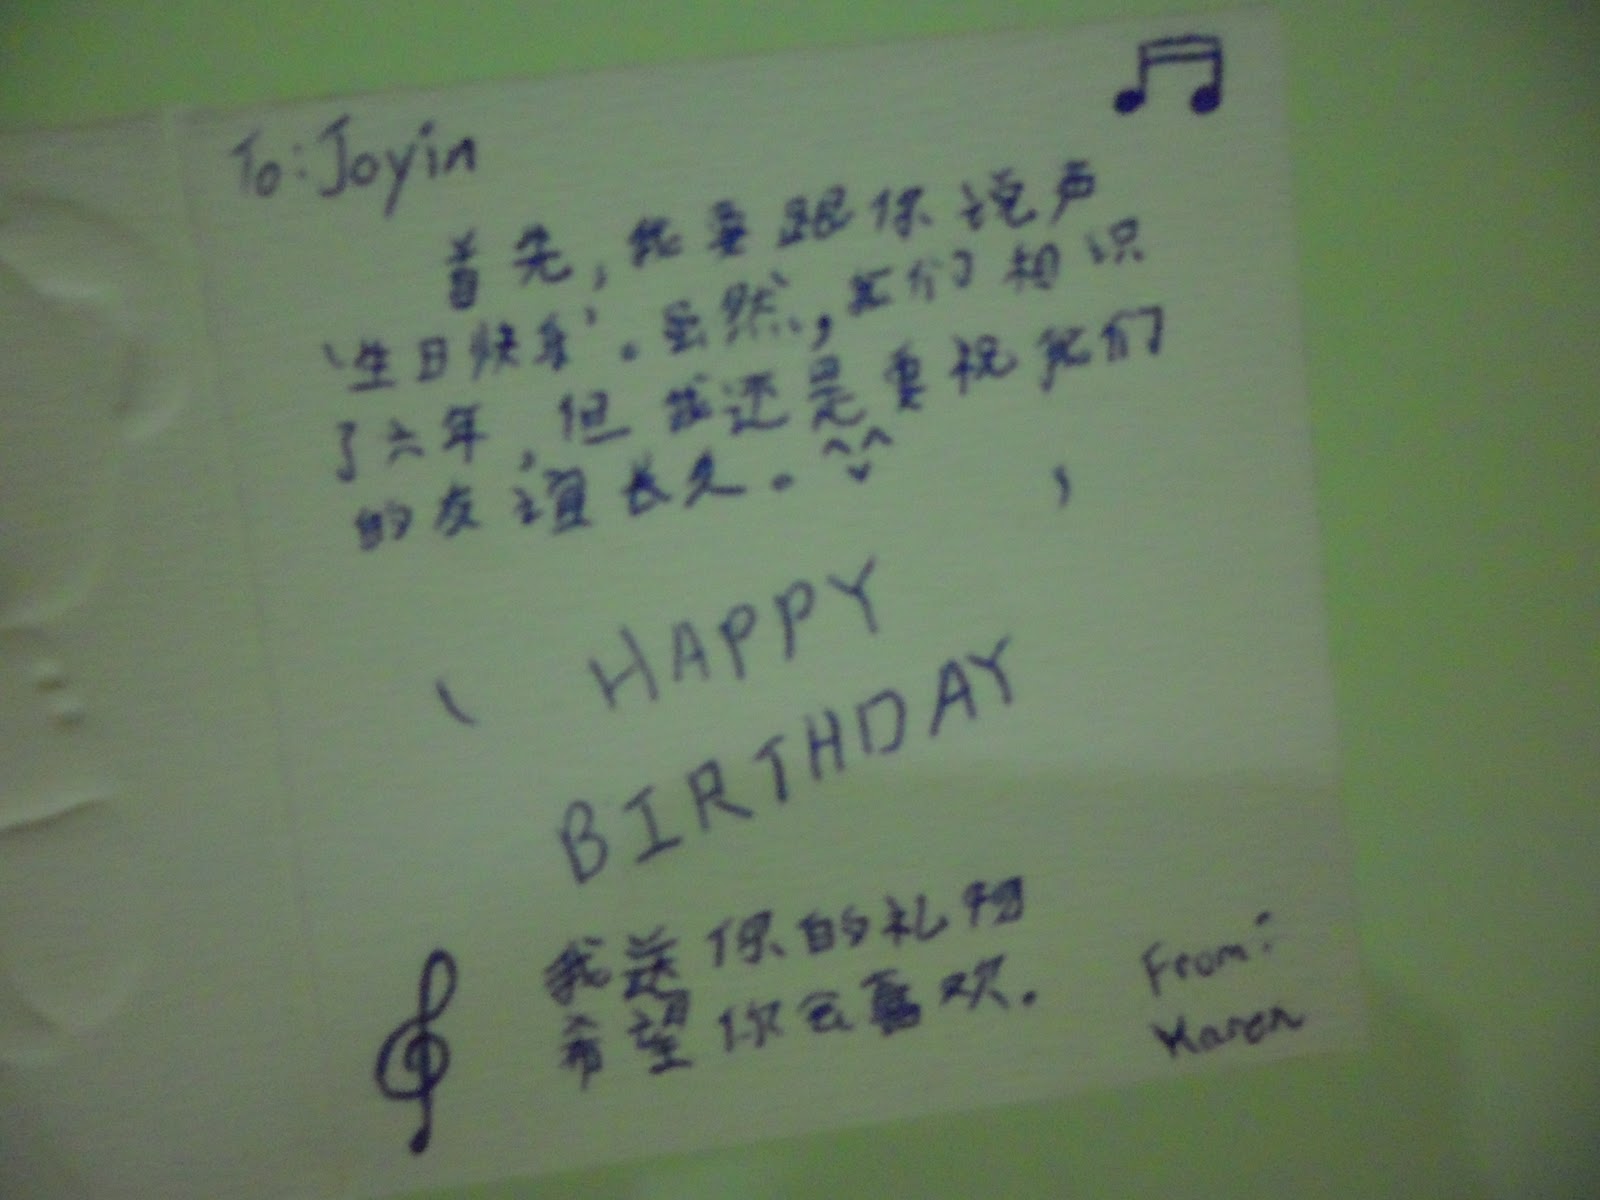 To: Joyin
首先,我要跟你说声
'生日快乐'。虽然,我们相识
了六年,但我还是要祝我们
的友谊长久。^ˇ^
HAPPY
BIRTHDAY
我送你的礼物
希望你会喜欢。
From:
Karen